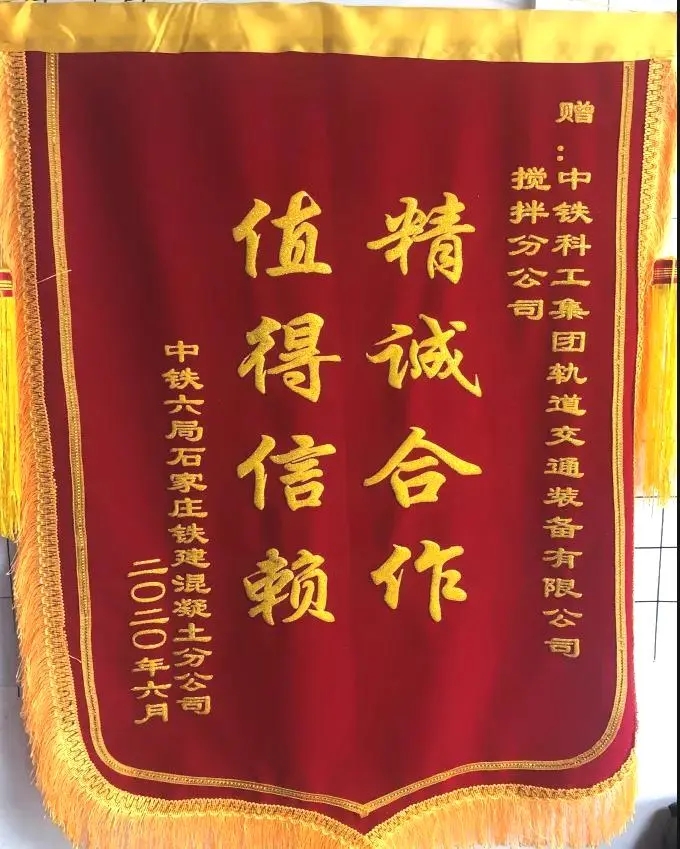 赠：中铁科工集团轨道交通装备有限公司
搅拌分公司
精诚合作
值得信赖
中铁六局石家庄铁建混凝土分公司
二〇二〇年六月